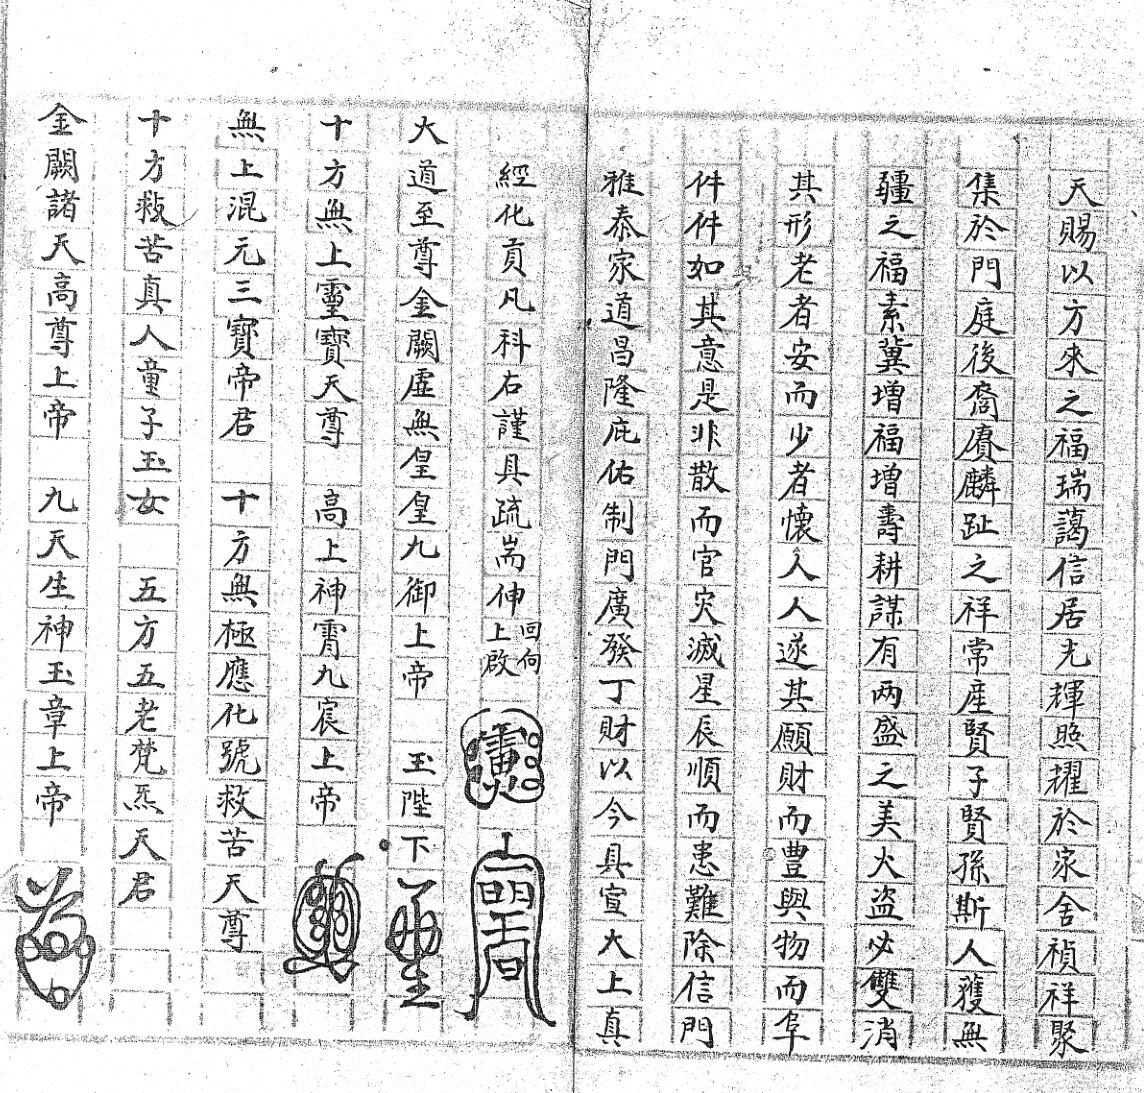 天賜以方來之福瑞藹信居光輝照耀於家舍禎祥聚
集於門庭後裔賡麟趾之祥常産賢子賢孫斯人獲無
疆之福素冀增福增壽耕謀有两盛之美火盗必雙消
其形老者安而少者懷人人遂其願財而豊與物而阜
件件如其意是非散而官灾滅星辰順而患難除信門
雅泰家道昌隆庇佑制門廣發丁財以今具宣大上真
經化貢凡科右謹具疏耑伸回向上啟
大道至尊金闕虚無皇皇九御上帝 玉陛下
十方無上靈寳天尊 高上神霄九宸上帝
無上混元三寳帝君 十方無極應化號救苦天尊
十方救苦真人童子玉女 五方五老梵炁天君
金闕諸天高尊上帝 九天生神玉章上帝